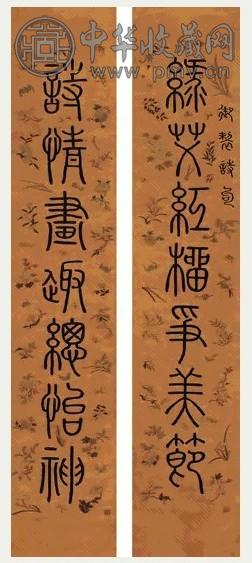 中华收藏网
www.pmv.cn
御製詩句
綠艾紅榴爭美節
詩情畫趣總怡神